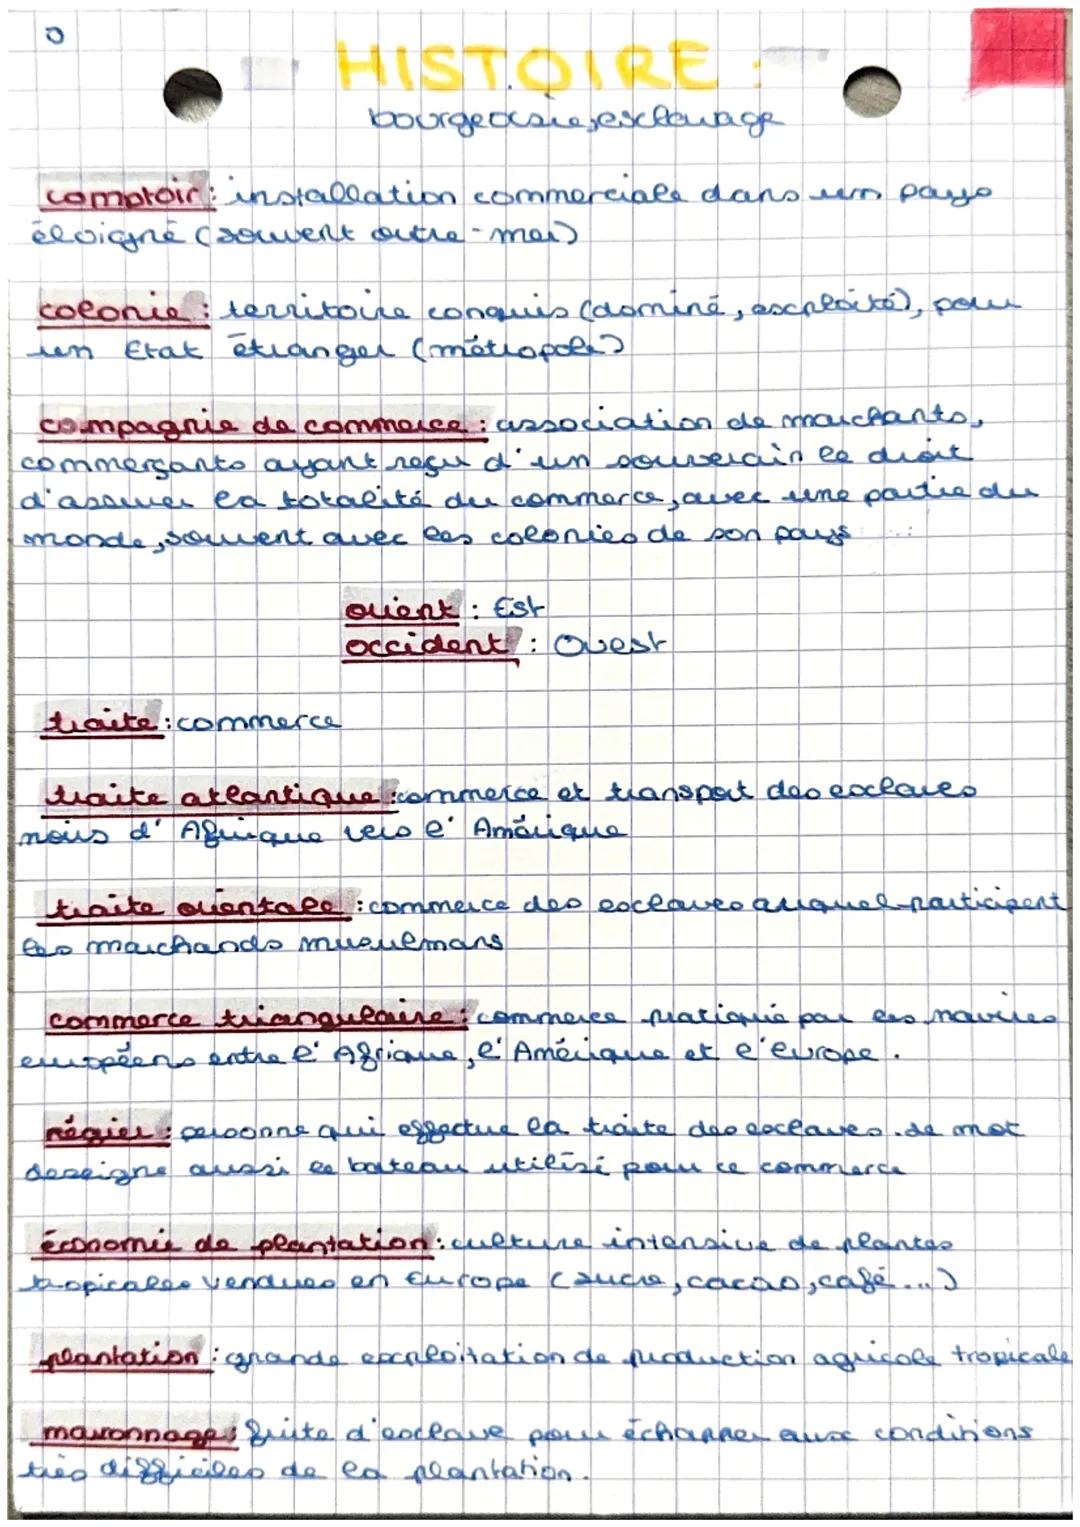 HISTOIRE :
bourgeoisie, esclavage
comptoir : installation commerciale dans un pays
éloigné (souvent outre-mer)
colonie : territoire conquis (dominé, exploité), pour
un Etat étranger (métropole)
compagnie de commerce : association de marchants,
commerçants ayant reçu d'un souverain le droit
d'assurer la totalité du commerce, avec une partie du
monde, souvent avec les colonies de son pays
orient : Est
occident : Ouest
traite : commerce
traite atlantique : commerce et transport des esclaves
noirs d'Afrique vers l'Amérique
traite orientale : commerce des esclaves auquel participent
les marchands musulmans
commerce triangulaire : commerce pratiqué par les navires
européens entre l'Afrique, l'Amérique et l'europe.
négrier : personne qui effectue la traite des esclaves. Le mot
designe aussi le bateau utilisé pour ce commerce
économie de plantation : culture intensive de plantes
tropicales vendues en Europe (sucre, cacao, café...)
plantation : grande exploitation de production agricole tropicale
marronnage : fuite d'esclave pour échapper aux conditions
très difficiles de la plantation.